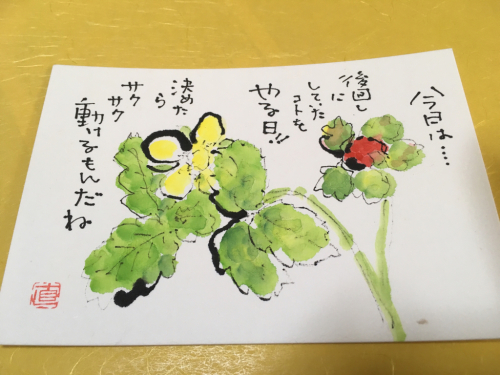 今日は....
後回し
に
していた
コトを
やる日!!
決めた
ら
サク
サク
動けるもんだね
真